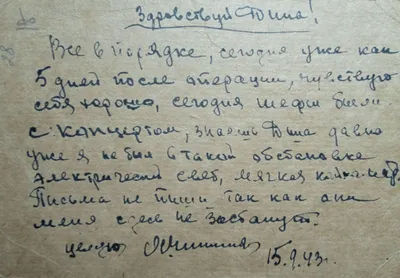 Здравствуй Дина!
Все в порядке, сегодня уже как
5 дней после операции, чувствую
себя хорошо, сегодня шефы были
с концертом, знаешь Дина давно
уже я не был в такой обстановке
электрический свет, мягкая
Письма не пиши так как они
меня здесь не застанут.
целую
15.9.43г.